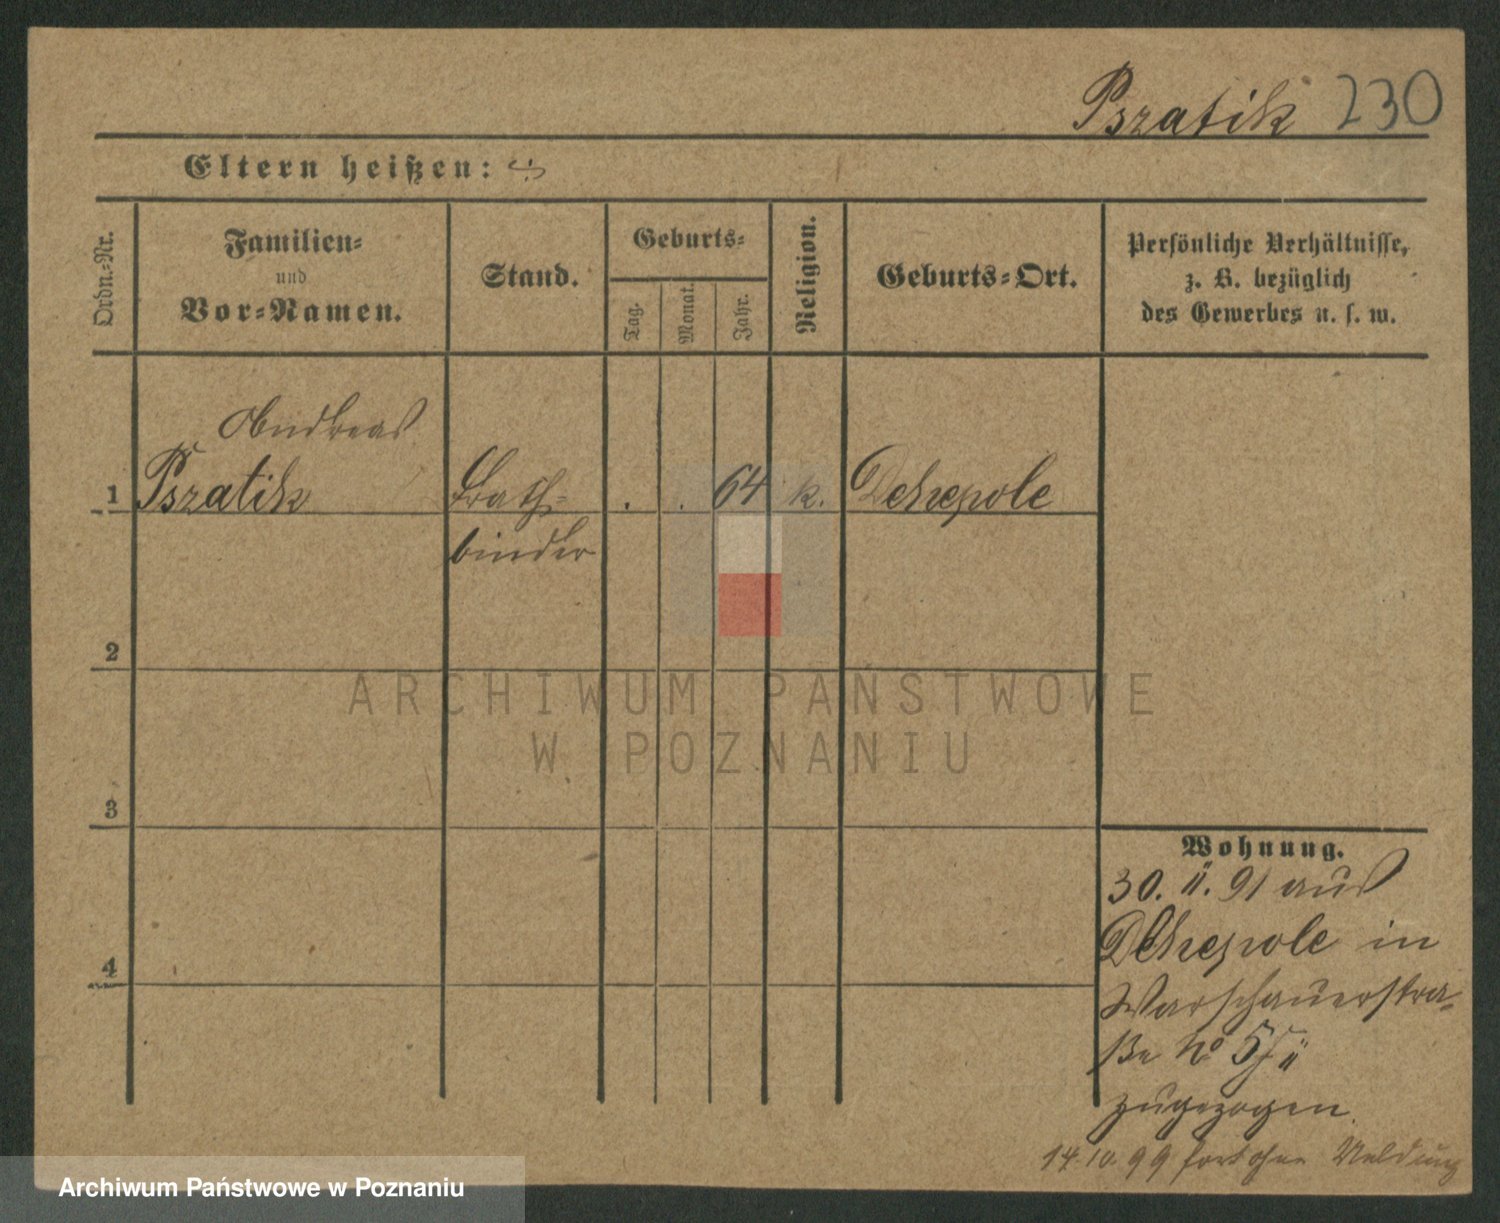 Pszatik 230
Eltern heißen:
Ordn.-Nr.
Familien-
und
Vor-Namen.
Stand.
Geburts-
Tag.
Monat.
Jahr.
Religion.
Geburts-Ort.
Persönliche Verhältnisse,
z. B. bezüglich
des Gewerbes u. s. w.
Andreas
1 Pszatik . . 64 k.
binder
2
3
4
Wohnung.
30. 11. 91 aus
in
Warschauerstra-
ße No
zugezogen.
14.10.99 fort ohne Meldung
ARCHIWUM PAŃSTWOWE
W POZNANIU
Archiwum Państwowe w Poznaniu